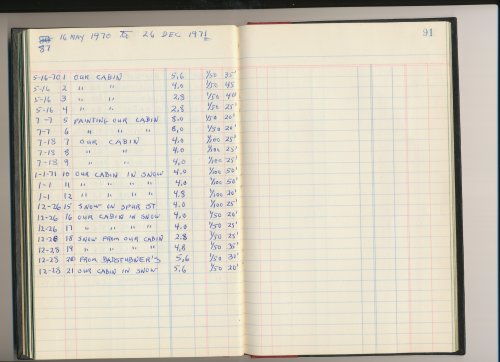 16 MAY 1970 To 26 DEC 1971
87
91
5-16-70 1 OUR CABIN 5.6 1/50 35'
5-16 2 " " 4.0 1/50 45'
5-16 3 " " 2.8 1/50 40'
5-16 4 " " 2.8 1/50 25'
7-7 5 PAINTING OUR CABIN 8.0 1/50 20'
7-7 6 " " " 8.0 1/50 20'
7-13 7 OUR CABIN 4.0 1/100 25'
7-13 8 " " 4.0 1/100 25'
7-13 9 " " 4.0 1/100 25'
1-1-71 10 OUR CABIN IN SNOW 4.0 1/100 50'
1-1 11 " " " " 4.0 1/100 50'
1-1 12 " " " " 4.8 1/100 20'
12-26 15 SNOW ON SPUR ST. 4.0 1/100 25'
12-26 16 OUR CABIN IN SNOW 4.0 1/50 20'
12-26 17 " " " " 4.0 1/50 25'
12-28 18 SNOW FROM OUR CABIN 2.8 1/50 25'
12-28 19 " " " " 4.8 1/50 35'
12-28 20 FROM 5.6 1/50 30'
12-28 21 OUR CABIN IN SNOW 5.6 1/50 20'